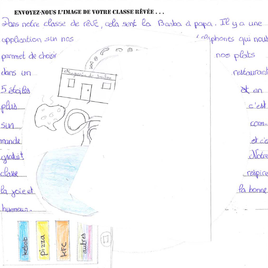 ENVOYEZ-NOUS L'IMAGE DE VOTRE CLASSE RÊVÉE . . .
Dans notre classe de rêve, cela sent la Barbe à papa. Il y a une
application sur nos téléphones qui nous
permet de choisir nos plats
dans un restaurant
5 étoiles et en
plus c'est
sur com-
mande et c'est
gratuit! Notre
classe respire
la joie et la bonne
humeur.
pizza
KFC
autres